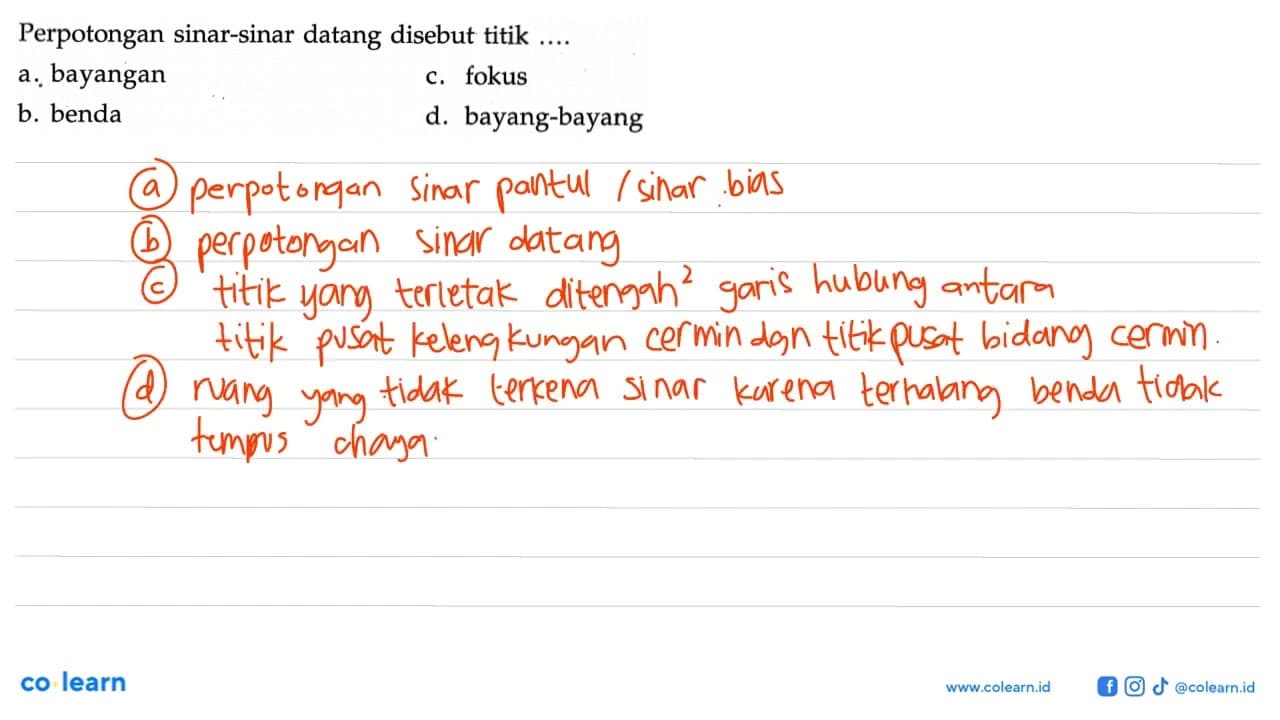 Perpotongan sinar-sinar datang disebut titik ....
a. bayangan c. fokus
b. benda d. bayang-bayang
a perpotongan sinar pantul / sinar bias
b perpotongan sinar datang
c titik yang terletak ditengah² garis hubung antara
titik pusat kelengkungan cermin dan titik pusat bidang cermin.
d ruang yang tidak terkena sinar karena terhalang benda tidak
tempus chaya.
co learn
www.colearn.id @colearn.id